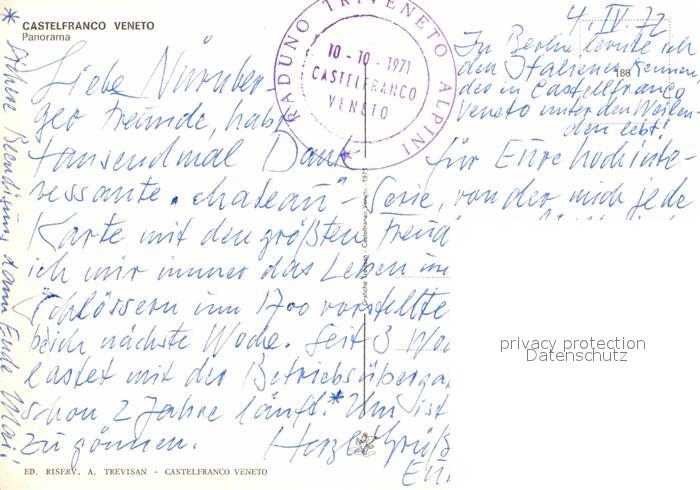 CASTELFRANCO VENETO
Panorama
RADUNO TRIVENETO ALPINI
10-10-1971
CASTELFRANCO
VENETO
4. IV. 72
186
In Berlin lernte ich
den Italiener kennen,
der in Castelfranco
Veneto unter den
den lebt!
Liebe Nürnber-
ger Freunde, habt
tausendmal Dank für Eure hochinte-
ressante "chateau"-Serie, von der mich jede
Karte mit den größten Freud
ich mir immer das Leben in
Schlössern um 1700 vorstellte
nächste Woche. Seit 3 Wo
lastet mit der Betriebsüberga
schon 2 Jahre läuft.* Um ist
zu gönnen. Herzl. Grüß
Eur
* Beendigung dann Ende Mai!
Grafiche Trevisan - Castelfranco Veneto
privacy protection
Datenschutz
ED. RISERV. A. TREVISAN - CASTELFRANCO VENETO